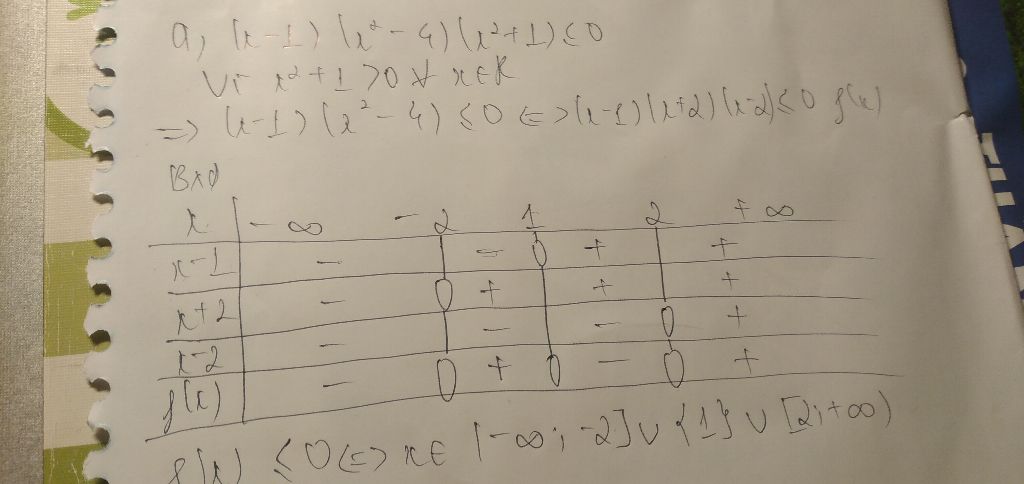 a, (x-1) (x² - 4) (x²+1) ≤ 0
Vì x² + 1 > 0 ∀ x ∈ R
=> (x-1) (x² - 4) ≤ 0 <=> (x-1) (x+2) (x-2) ≤ 0 f(x)
BXD
x -∞ -2 1 2 +∞
x-1 - - 0 + +
x+2 - 0 + + +
x-2 - - - 0 +
f(x) - 0 + 0 - 0 +
f(x) ≤ 0 <=> x ∈ (-∞; -2] ∪ {1} ∪ [2; +∞)